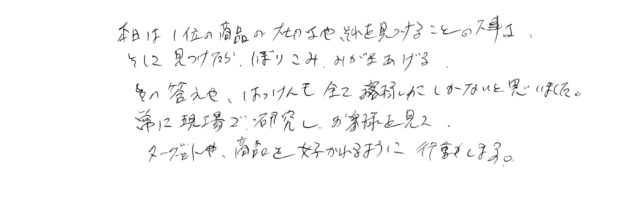 本日は1位の商品の大切さや、それを見つけることの大事さ、
そして見つけたら、ほりこみ、みがきあげる
その答えや、はっけんも全てお客様にしかないと思いました。
常に現場で、研究し、お客様を見て、
ターゲットや、商品を好かれるように行動します。